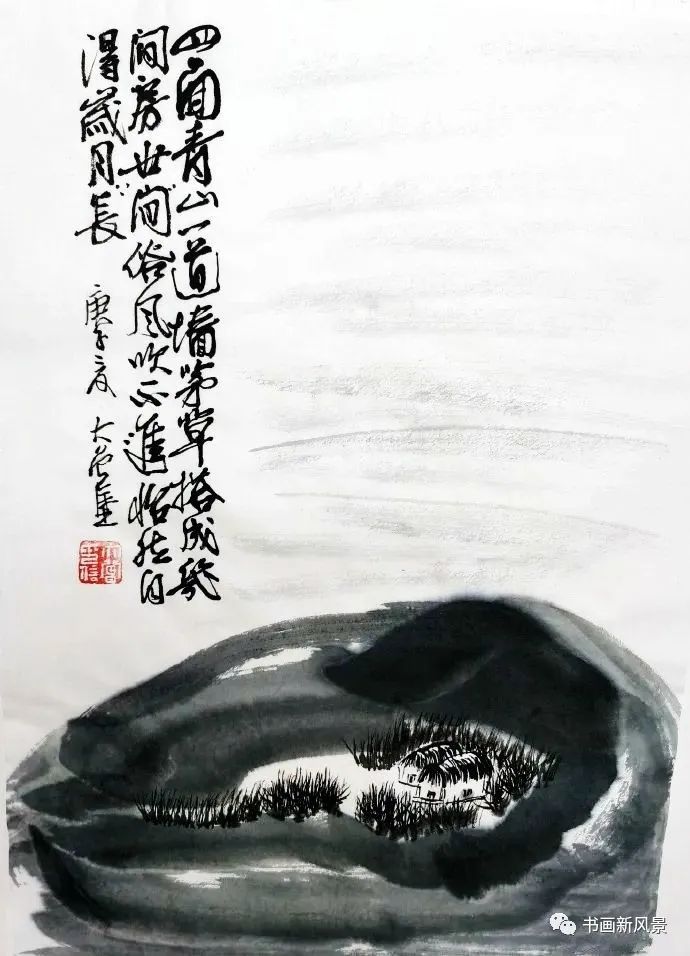 四面青山一道墙茅草搭成幾
间房世间俗风吹不進怡然自
得歲月長
庚子 大
书画新风景